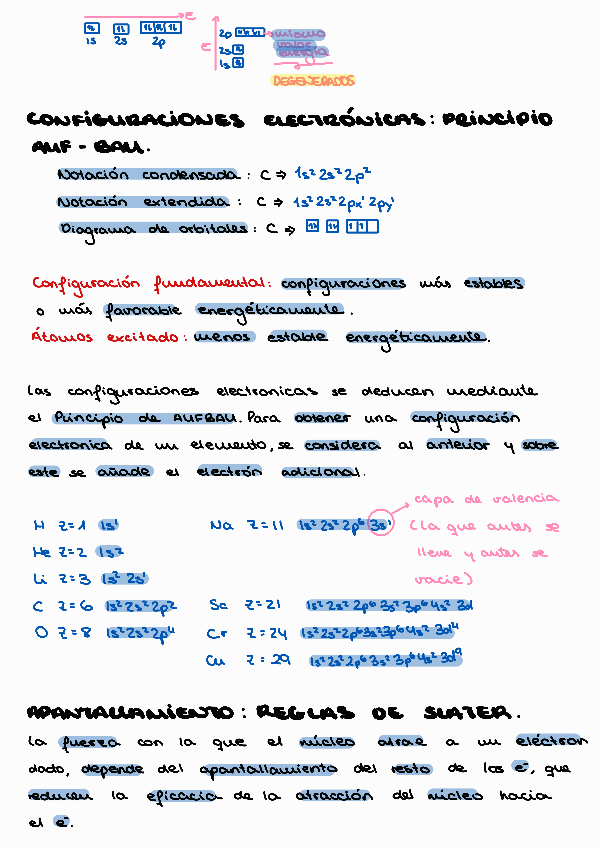 E
1s 2s 2p
E
2p
2s
1s
mismo
valor
energía
DEGENERADOS
CONFIGURACIONES ELECTRÓNICAS: PRINCIPIO
AUF - BAU.
Notación condensada : C ⇒ 1s² 2s² 2p²
Notación extendida : C ⇒ 1s² 2s² 2px¹ 2py¹
Diagrama de orbitales : C ⇒
Configuración fundamental: configuraciones más estables
o más favorable energéticamente.
Átomos excitado: menos estable energéticamente.
Las configuraciones electronicas se deducen mediante
el Principio de AUFBAU. Para obtener una configuración
electronica de un elemento, se considera al anterior y sobre
este se añade el electrón adicional.
capa de valencia
(la que antes se
llene y antes se
vacie)
H Z=1 1s¹
Na Z=11 1s² 2s² 2p⁶ 3s¹
He Z=2 1s²
Li Z=3 1s² 2s¹
C Z=6 1s² 2s² 2p²
Sc Z=21 1s² 2s² 2p⁶ 3s² 3p⁶ 4s² 3d
O Z=8 1s² 2s² 2p⁴
Cr Z=24 1s² 2s² 2p⁶ 3s² 3p⁶ 4s² 3d⁴
Cu Z=29 1s² 2s² 2p⁶ 3s² 3p⁶ 4s² 3d⁹
APANTALLAMIENTO: REGLAS DE SLATER.
La fuerza con la que el núcleo atrae a un eléctron
dado, depende del apantallamiento del resto de los e⁻, que
reducen la eficacia de la atracción del núcleo hacia
el e⁻.